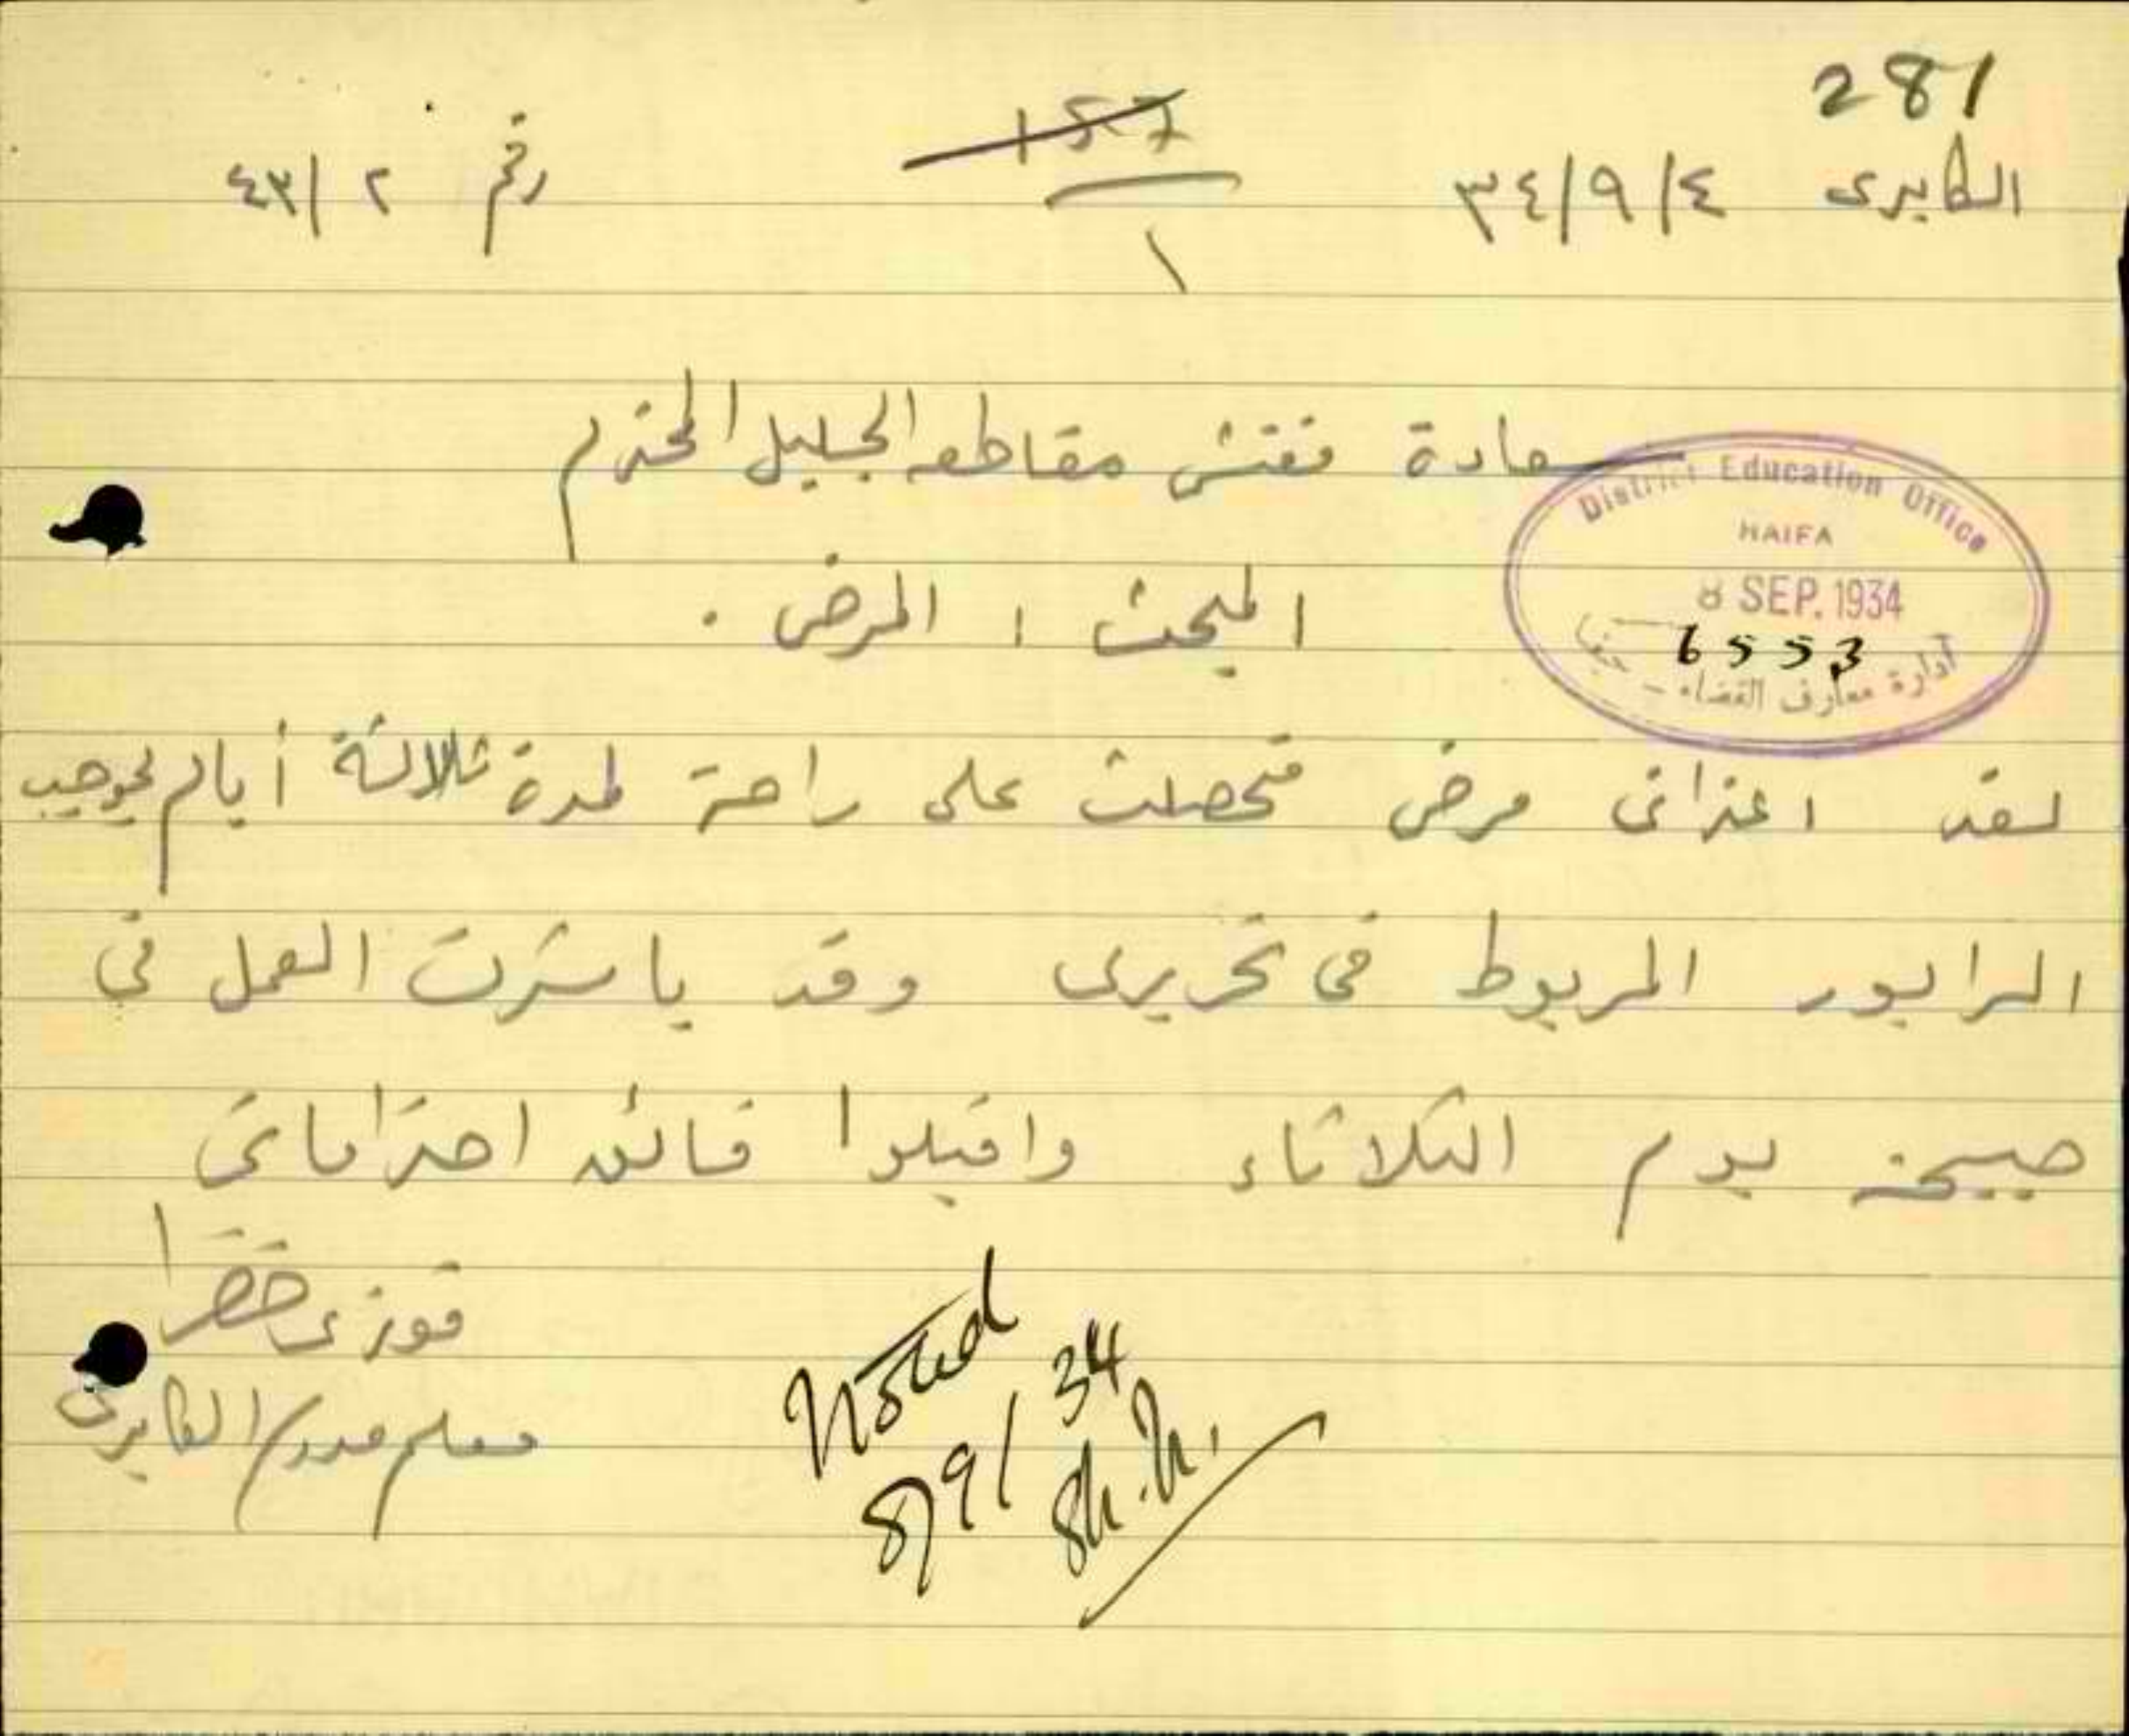 281
الكابرى ٣٤/٩/٤
رقم ٤٣/٢
١
سعادة مفتش مقاطعه الجليل المحترم
District Education Office
HAIFA
8 SEP. 1934
6553
ادارة معارف القضاء - حيفا
المبحث : المرض .
لقد اعترانى مرض فتحصلت على راحة لمدة ثلاثة أيام بموجب
الرابور المربوط فى تحريرى وقد باشرت العمل في
صبيحة يوم الثلاثاء واقبلوا فائق احتراماتى
فوزى خضرا
معلم مدر/ الكابرى
Noted
8/9/34
Sh.N.